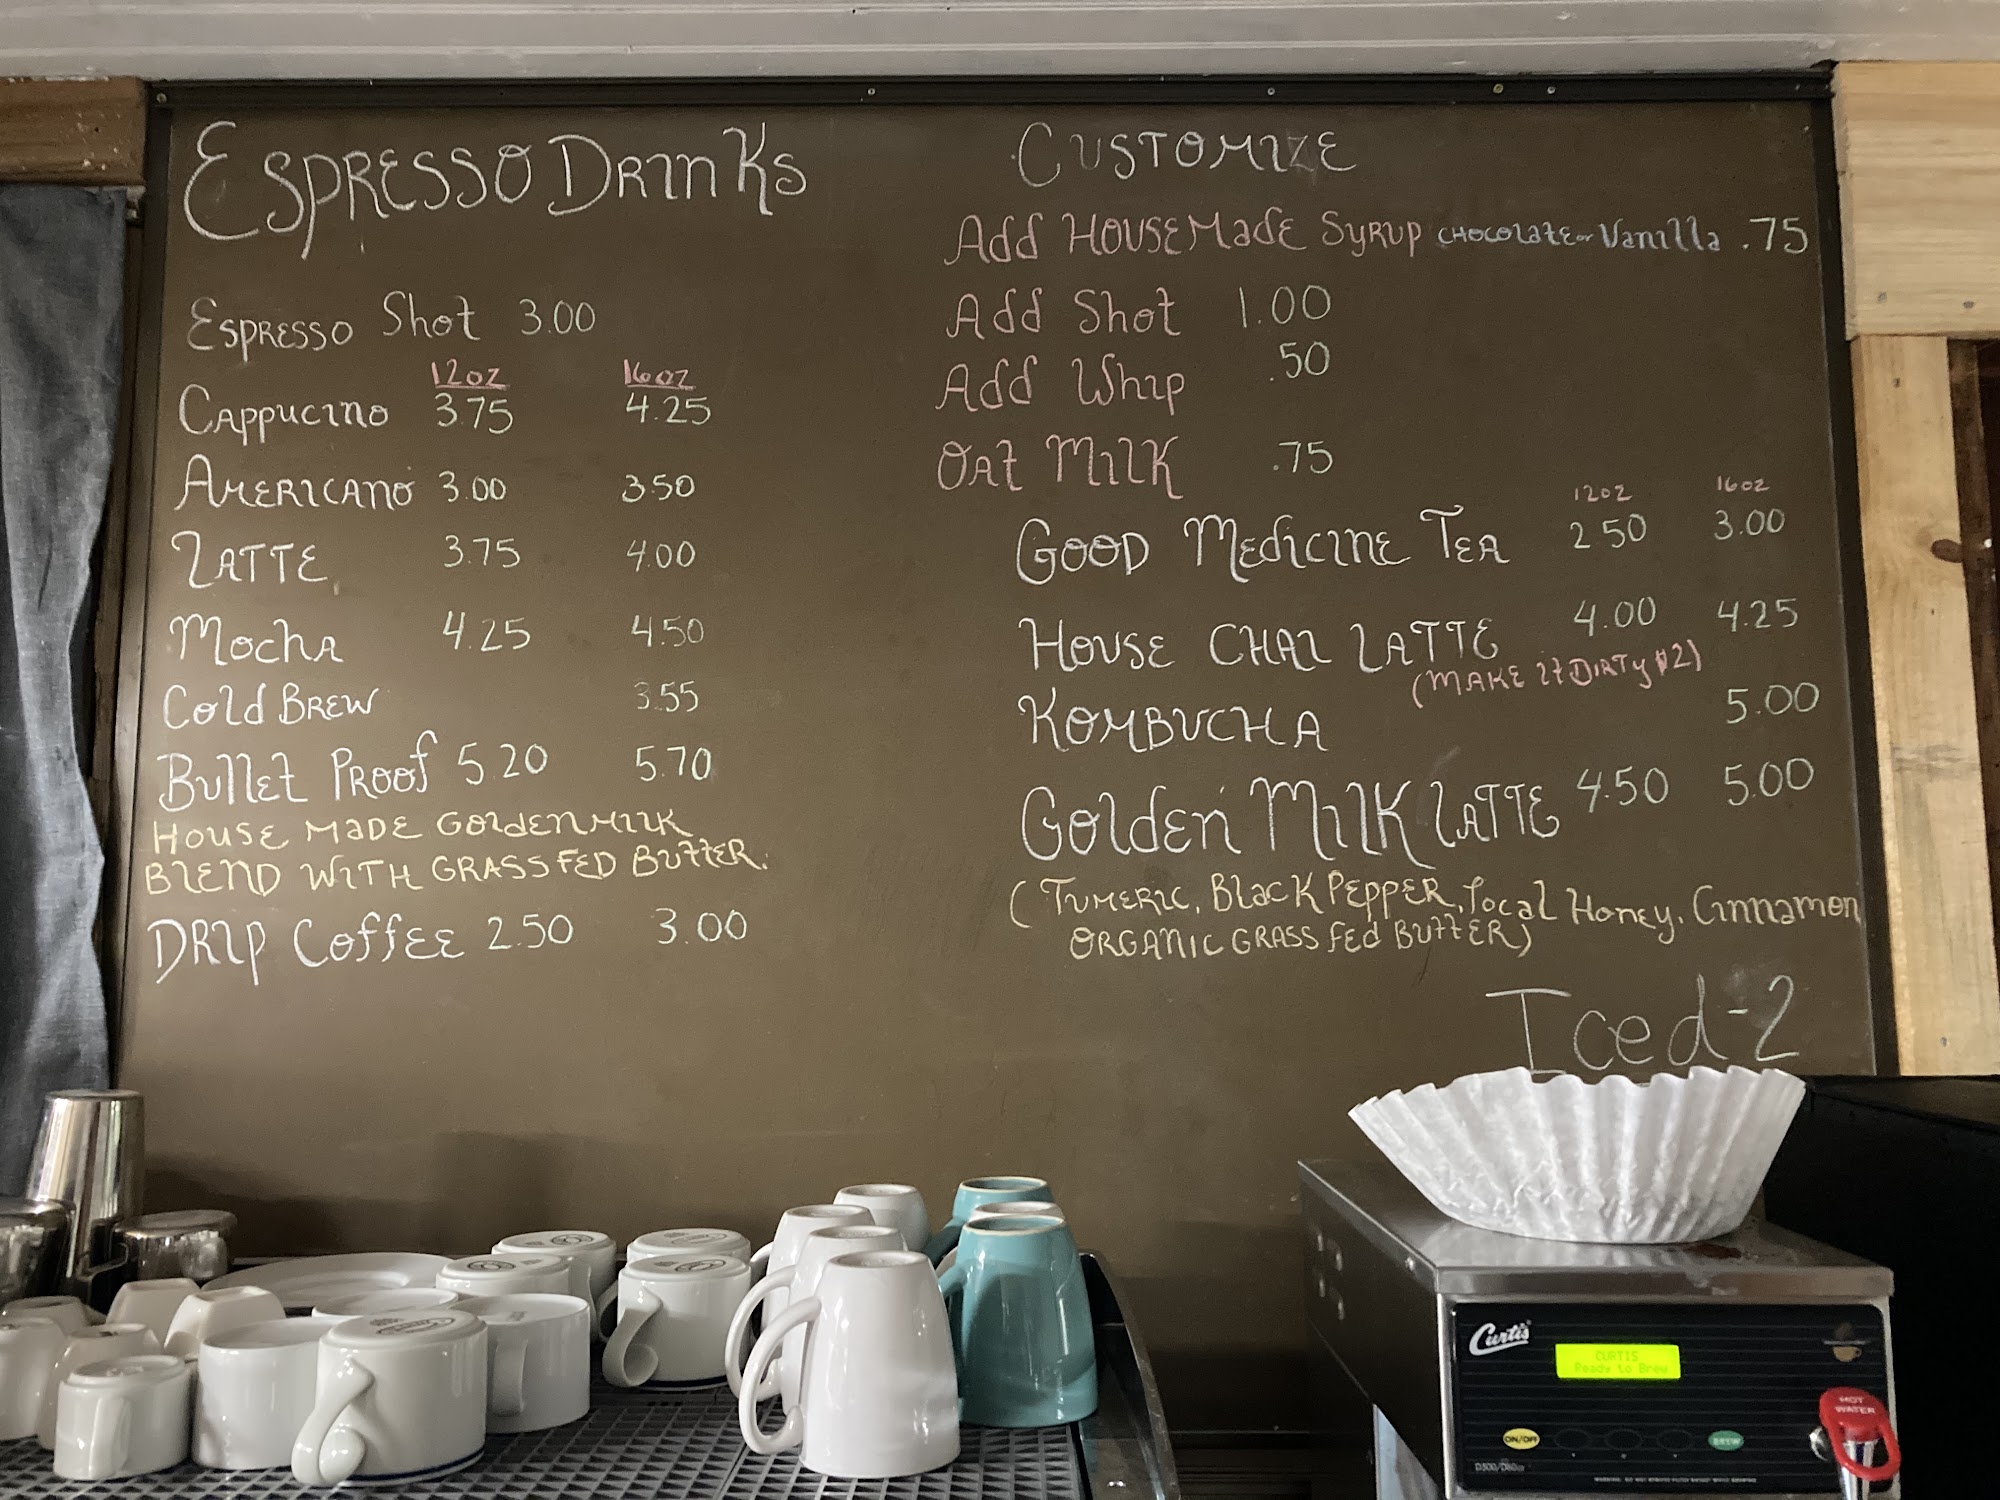 Espresso Drinks
Espresso Shot 3.00
12oz 16oz
Cappucino 3.75 4.25
Americano 3.00 3.50
Latte 3.75 4.00
Mocha 4.25 4.50
Cold Brew 3.55
Bullet Proof 5.20 5.70
House made Goldenmilk
Blend with Grass Fed Butter.
Drip Coffee 2.50 3.00
Customize
Add HouseMade Syrup Chocolate or Vanilla .75
Add Shot 1.00
Add Whip .50
Oat Milk .75
12oz 16oz
Good Medicine Tea 2.50 3.00
House Chai Latte 4.00 4.25
(Make it Dirty $2)
Kombucha 5.00
Golden Milk Latte 4.50 5.00
(Tumeric, Black Pepper, Local Honey, Cinnamon
Organic Grass Fed Butter)
Iced-2
Curtis
CURTIS
Ready to Brew
HOT
WATER
ON/OFF
BREW